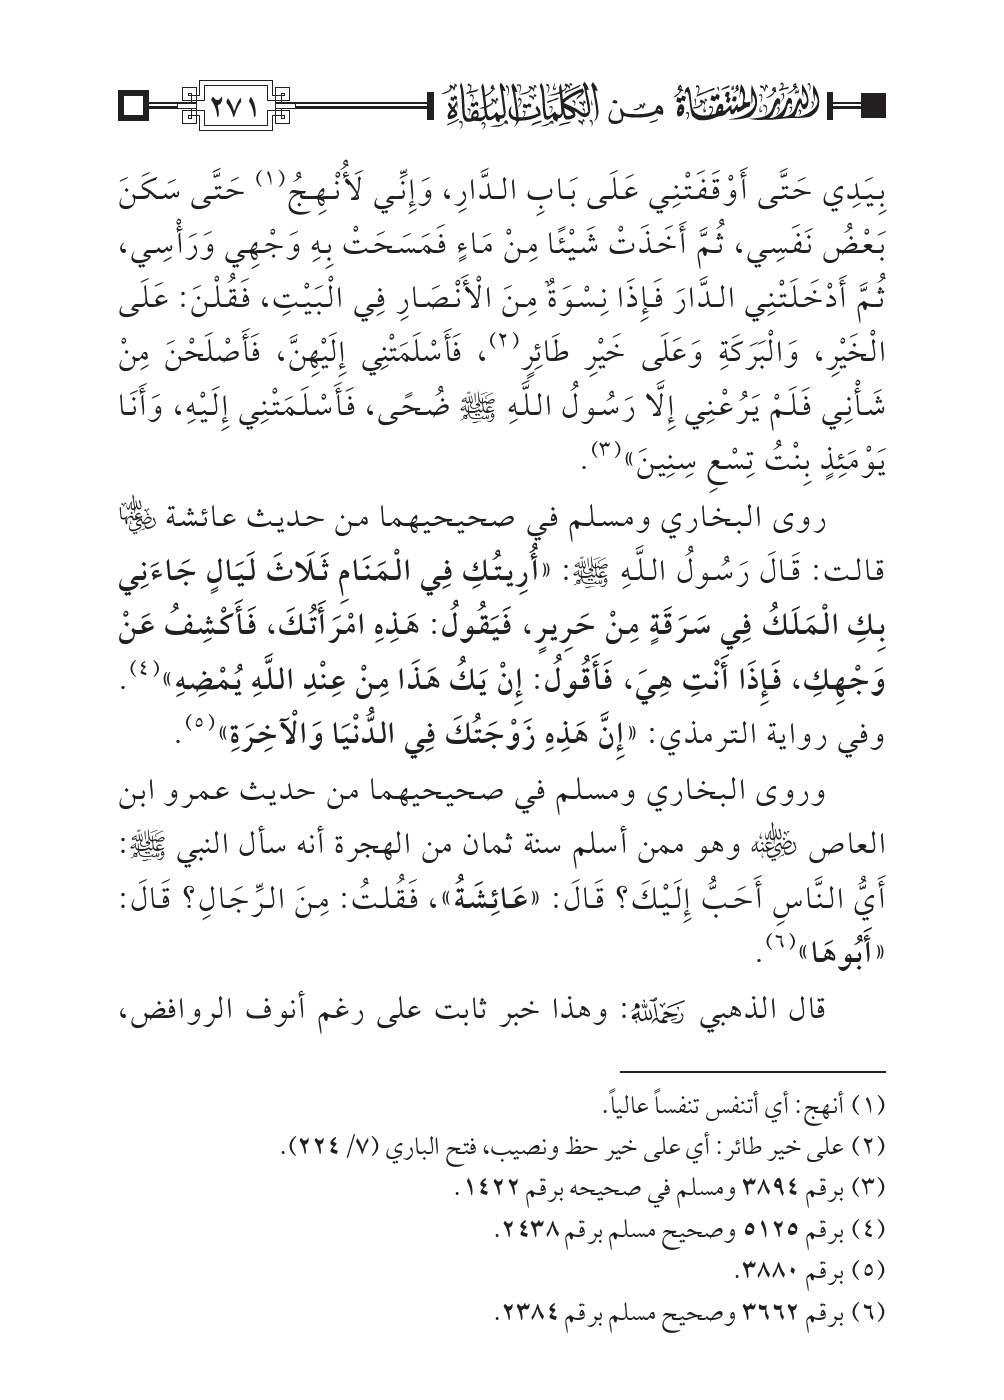 الدُّرَرُ المُنْتَقَاةُ مِنَ الكَلِمَاتِ المُلْقَاةِ
٢٧١
بِيَدِي حَتَّى أَوْقَفَتْنِي عَلَى بَابِ الدَّارِ، وَإِنِّي لَأُنْهِجُ(١) حَتَّى سَكَنَ
بَعْضُ نَفَسِي، ثُمَّ أَخَذَتْ شَيْئًا مِنْ مَاءٍ فَمَسَحَتْ بِهِ وَجْهِي وَرَأْسِي،
ثُمَّ أَدْخَلَتْنِي الدَّارَ فَإِذَا نِسْوَةٌ مِنَ الْأَنْصَارِ فِي الْبَيْتِ، فَقُلْنَ: عَلَى
الْخَيْرِ، وَالْبَرَكَةِ وَعَلَى خَيْرِ طَائِرٍ(٢)، فَأَسْلَمَتْنِي إِلَيْهِنَّ، فَأَصْلَحْنَ مِنْ
شَأْنِي فَلَمْ يَرُعْنِي إِلَّا رَسُولُ اللَّهِ ﷺ ضُحًى، فَأَسْلَمَتْنِي إِلَيْهِ، وَأَنَا
يَوْمَئِذٍ بِنْتُ تِسْعِ سِنِينَ»(٣).
روى البخاري ومسلم في صحيحيهما من حديث عائشة رضي الله عنها
قالت: قَالَ رَسُولُ اللَّهِ ﷺ: «أُرِيتُكِ فِي الْمَنَامِ ثَلَاثَ لَيَالٍ جَاءَنِي
بِكِ الْمَلَكُ فِي سَرَقَةٍ مِنْ حَرِيرٍ، فَيَقُولُ: هَذِهِ امْرَأَتُكَ، فَأَكْشِفُ عَنْ
وَجْهِكِ، فَإِذَا أَنْتِ هِيَ، فَأَقُولُ: إِنْ يَكُ هَذَا مِنْ عِنْدِ اللَّهِ يُمْضِهِ»(٤).
وفي رواية الترمذي: «إِنَّ هَذِهِ زَوْجَتُكَ فِي الدُّنْيَا وَالْآخِرَةِ»(٥).
وروى البخاري ومسلم في صحيحيهما من حديث عمرو ابن
العاص رضي الله عنه وهو ممن أسلم سنة ثمان من الهجرة أنه سأل النبي ﷺ:
أَيُّ النَّاسِ أَحَبُّ إِلَيْكَ؟ قَالَ: «عَائِشَةُ»، فَقُلتُ: مِنَ الرِّجَالِ؟ قَالَ:
«أَبُوهَا»(٦).
قال الذهبي رحمه الله: وهذا خبر ثابت على رغم أنوف الروافض،
(١) أنهج: أي أتنفس تنفساً عالياً.
(٢) على خير طائر: أي على خير حظ ونصيب، فتح الباري (٧/ ٢٢٤).
(٣) برقم ٣٨٩٤ ومسلم في صحيحه برقم ١٤٢٢.
(٤) برقم ٥١٢٥ وصحيح مسلم برقم ٢٤٣٨.
(٥) برقم ٣٨٨٠.
(٦) برقم ٣٦٦٢ وصحيح مسلم برقم ٢٣٨٤.